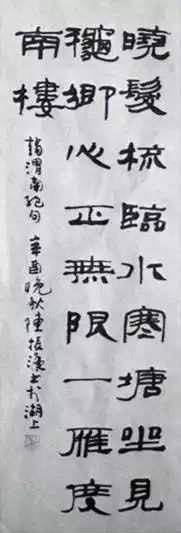 曉髮梳臨水寒塘坐見
龝鄉心正無限一雁度
南樓
渭南絕句 辛酉晚秋陳振濂書於湖上